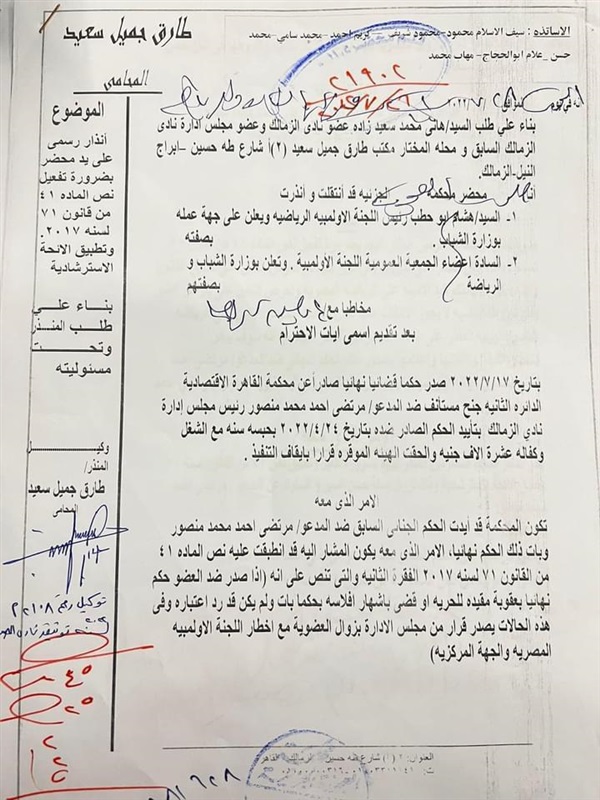 الاساتذه : سيف الاسلام محمود-محمود شريف – كريم احمد-محمد سامي-محمد
حسن _علام ابوالحجاج – مهاب محمد
طارق جميل سعيد
المحامى
الموضوع
أنذار رسمى
على يد محضر
بضرورة تفعيل
نص الماده ٤١
من قانون ٧١
لسنه ٢٠١٧.
وتطبيق الائحة
الاسترشادية
بناء علي
طلب المنذر
وتحت
مسئوليته
وكيل
المنذر/
طارق جميل سعيد
المحامى
توكيل رقم
٤٥
٢٥
٢
٢١٩٠٢
أنه في يوم
بناء علي طلب السيد/هانى محمد سعيد زاده عضو نادى الزمالك وعضو مجلس ادارة نادى
الزمالك السابق و محله المختار مكتب طارق جميل سعيد (٢)أ شارع طه حسين –ابراج
النيل-الزمالك.
أنا محضر محكمة الجزئيه قد أنتقلت و أنذرت
١- السيد/هشام ابو حطب رئيس اللجنة الاولمبيه الرياضيه ويعلن على جهة عمله
بوزارة الشباب . بصفته
٢- السادة اعضاء الجمعية العمومية اللجنة الأولمبية . وتعلن بوزارة الشباب و
الرياضة بصفتهم
مخاطبا مع
بعد تقديم اسمى ايات الاحترام
بتاريخ ٢٠٢٢/٧/١٧ صدر حكما قضائيا نهائيا صادرأ عن محكمة القاهرة الاقتصادية
الدائره الثانيه جنح مستأنف ضد المدعو/ مرتضى احمد محمد منصور رئيس مجلس إدارة
نادي الزمالك بتأييد الحكم الصادر ضده بتاريخ ٢٠٢٢/٤/٢٤ بحبسه سنه مع الشغل
وكفاله عشرة الاف جنيه والحقت الهيئه الموقره قرارا بايقاف التنفيذ .
الامر الذى معه
تكون المحكمة قد أيدت الحكم الجنائى السابق ضد المدعو/ مرتضى احمد محمد منصور
وبات ذلك الحكم نهائيا، الامر الذى معه يكون المشار اليه قد انطبقت عليه نص الماده ٤١
من القانون ٧١ لسنه ٢٠١٧ الفقرة الثانيه والتى تنص على انه (اذا صدر ضد العضو حكم
نهائيا بعقوبة مقيده للحريه او قضى باشهار افلاسه بحكما بات ولم يكن قد رد اعتباره وفى
هذه الحالات يصدر قرار من مجلس الادارة بزوال العضوية مع اخطار اللجنة الاولمبيه
المصريه والجهة المركزيه)
العنوان: ٢ (أ) شارع طه حسين الزمالك القاهر